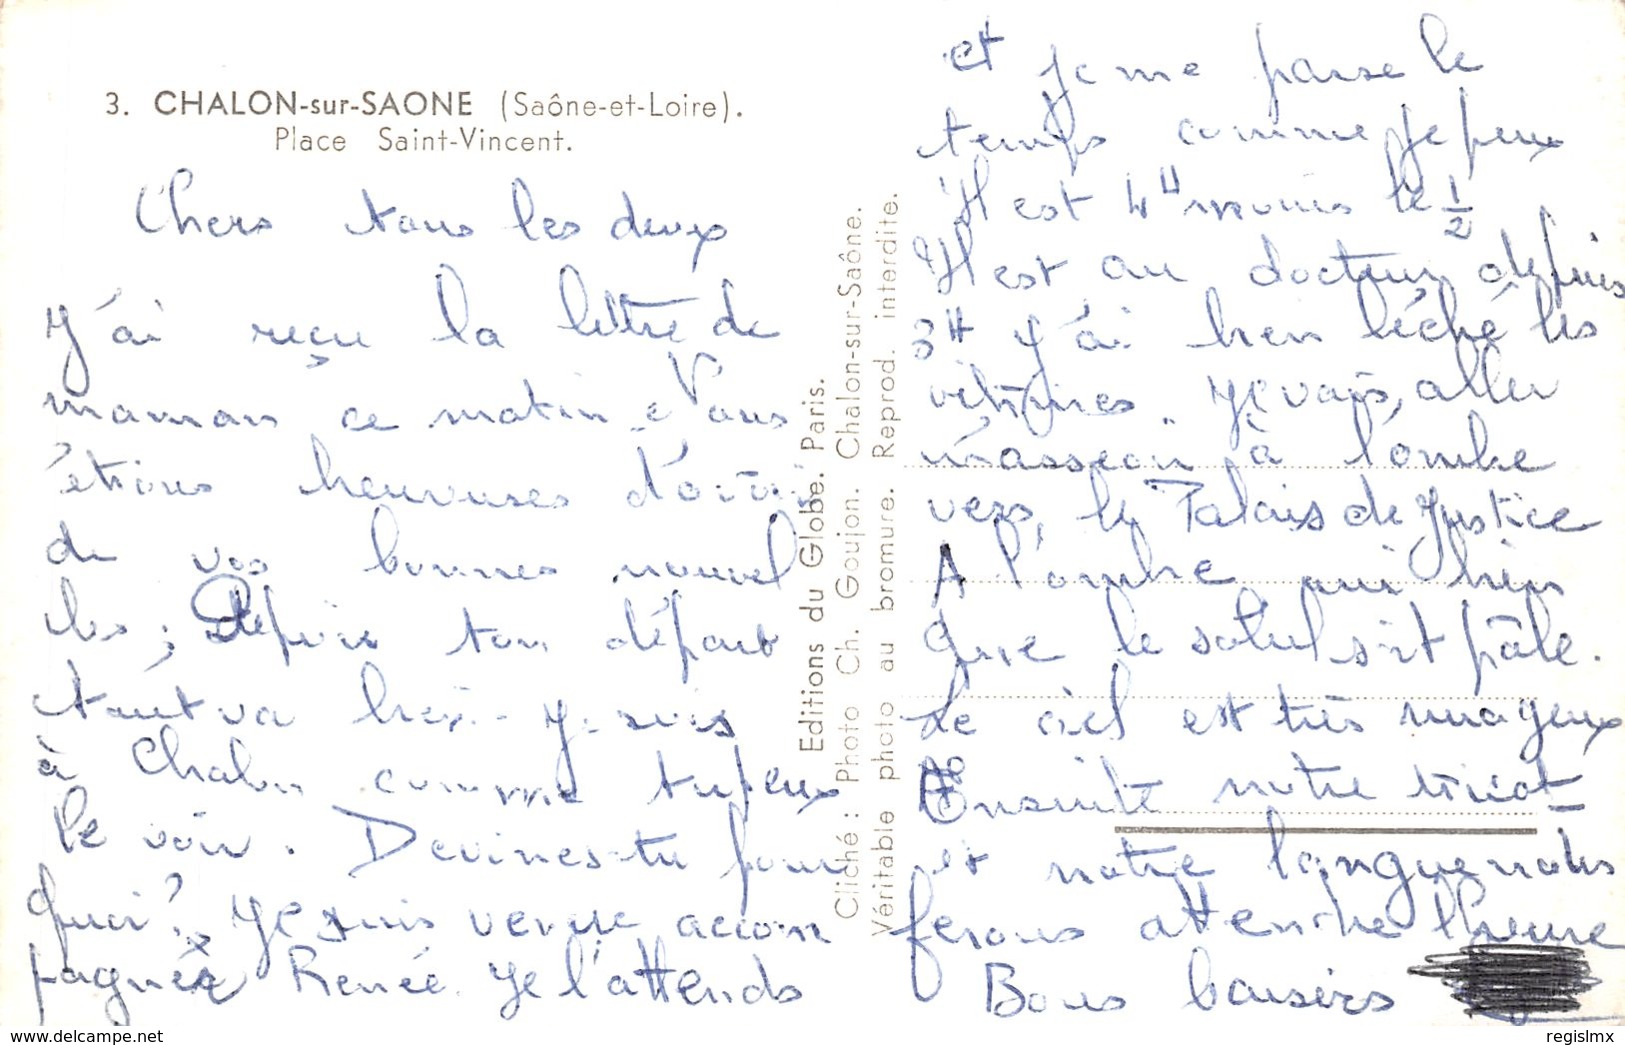 3. CHALON-sur-SAONE (Saône-et-Loire).
Place Saint-Vincent.
Chers tous les deux
J'ai reçu la lettre de
maman ce matin. Nous
étions heureuses d'avoir
de vos bonnes nouvel
les ; Depuis ton départ
tout va bien. Je suis
à Chalon comme tu peux
le voir. Devines-tu pour
quoi? Je suis venue accom
pagner Renée. Je l'attends
Editions du Globe. Paris.
Cliché : Photo Ch. Goujon. Chalon-sur-Saône.
Véritable photo au bromure. Reprod. interdite.
et je me passe le
temps comme je peux
Il est 4H moins le 1/2
Il est au docteur depuis
3H J'ai bien léché les
vitrines. Je vais, aller
m'asseoir à l'ombre
vers, le Palais de Justice
A l'ombre oui bien
que le soleil soit pâle.
Le ciel est très nuageux
Ensuite notre tricot
et notre langue nous
ferons attendre l'heure
Bons baisers
delcampe.net
regislmx